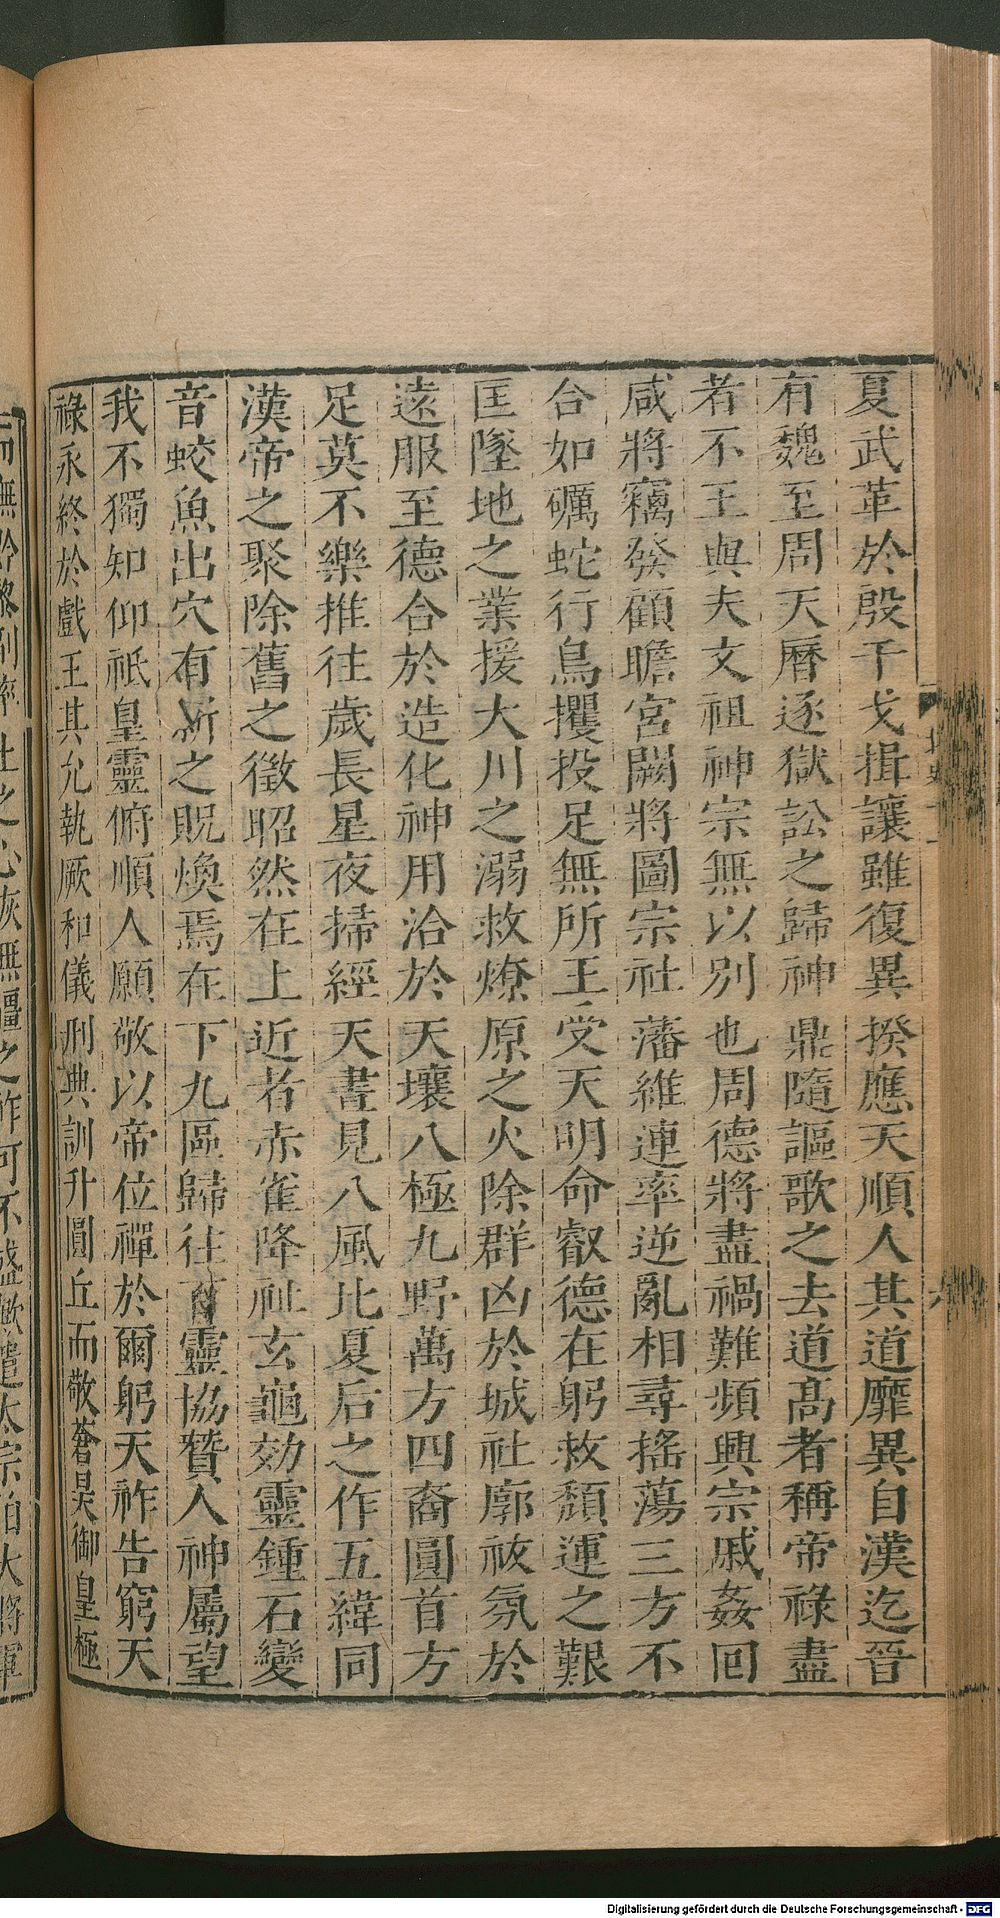 夏武革於殷干戈揖讓雖復異揆應天順人其道靡異自漢迄晉
有魏至周天曆逐獄訟之歸神鼎隨謳歌之去道髙者稱帝祿盡
者不王與夫文祖神宗無以别也周德將盡禍難頻興宗戚姦回
咸將竊發顧瞻宮闕將圖宗社藩維連率逆亂相尋搖蕩三方不
合如礪蛇行鳥攫投足無所王受天明命叡德在躬救頹運之艱
匡墜地之業援大川之溺救燎原之火除群凶於城社廓祲氛於
遠服至德合於造化神用洽於天壤八極九野萬方四裔圓首方
足莫不樂推往歲長星夜掃經天晝見八風比夏后之作五緯同
漢帝之聚除舊之徵昭然在上近者赤雀降祉玄龜効靈鍾石變
音蛟魚出穴布新之貺煥焉在下九區歸往百靈協贊人神屬望
我不獨知仰祇皇靈俯順人願敬以帝位禪於爾躬天祚告窮天
祿永終於戲王其允執厥和儀刑典訓升圓丘而敬蒼昊御皇極
而無  黎    率土之心恢無疆之祚可不盛歟遣太宗伯大將軍
Digitalisierung gefördert durch die Deutsche Forschungsgemeinschaft - DFG